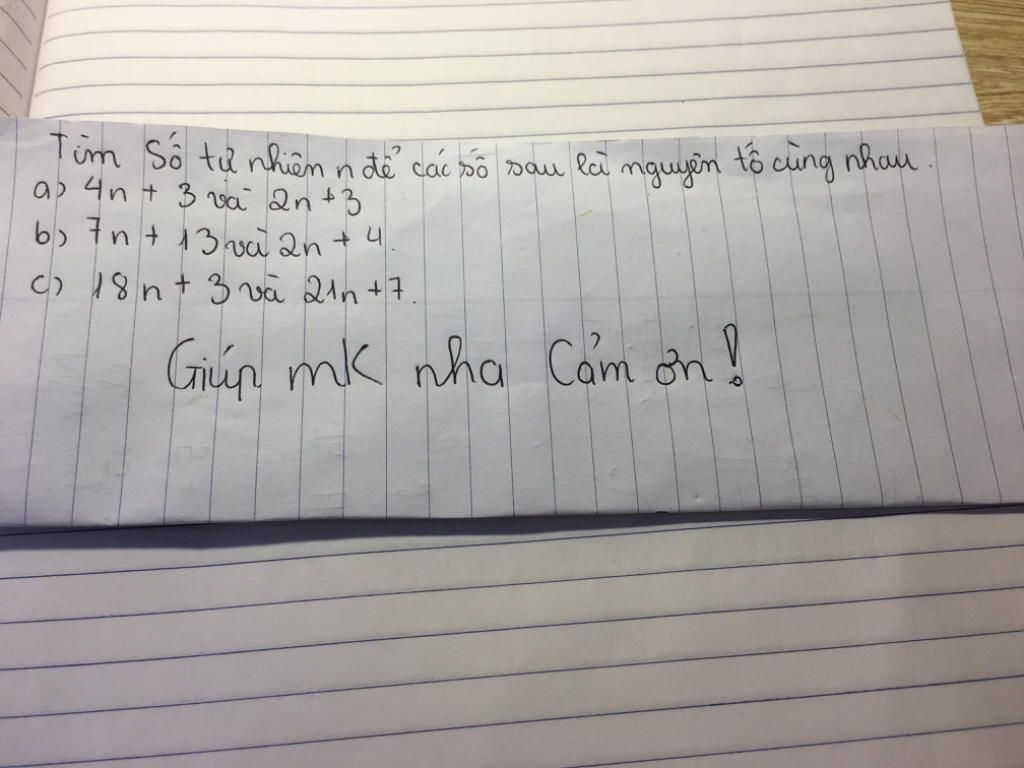 Tìm Số tự nhiên n để các số sau là nguyên tố cùng nhau.
a) 4n + 3 và 2n + 3
b) 7n + 13 và 2n + 4.
c) 18n + 3 và 21n + 7.
Giúp mK nha Cảm ơn!